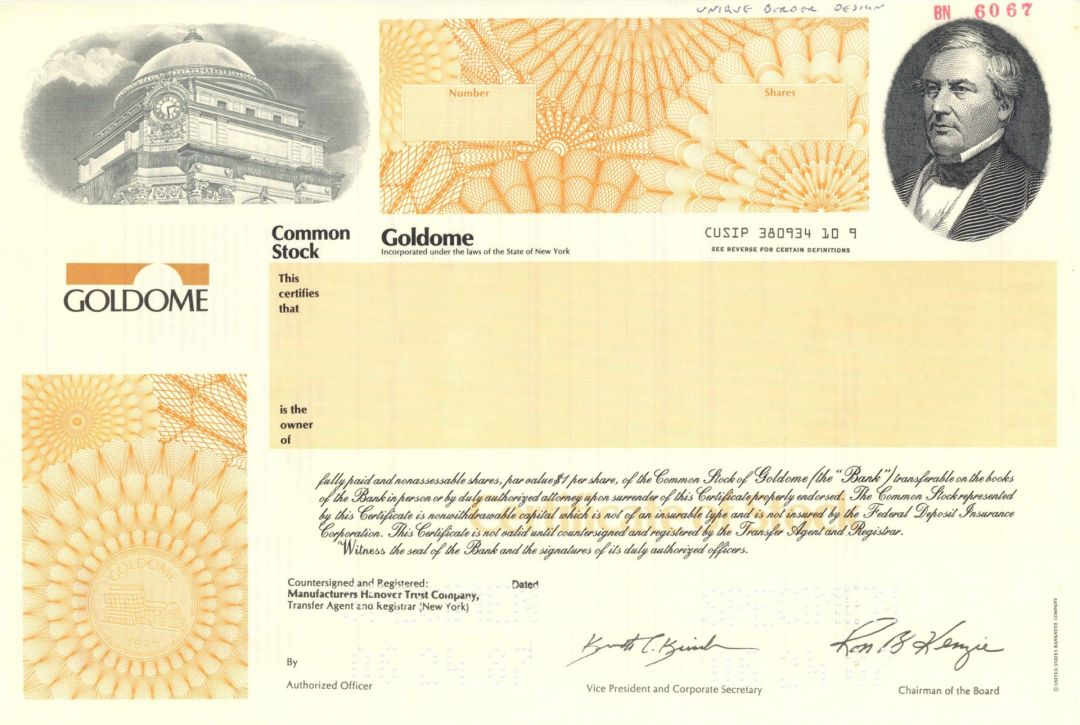 UNIQUE BORDER DESIGN
BN 6067
Number
Shares
Common
Stock
Goldome
Incorporated under the laws of the State of New York
CUSIP 380934 10 9
SEE REVERSE FOR CERTAIN DEFINITIONS
GOLDOME
This
certifies
that
is the
owner
of
fully paid and nonassessable shares, par value $1 per share, of the Common Stock of Goldome (the "Bank") transferable on the books
of the Bank in person or by duly authorized attorney upon surrender of this Certificate properly endorsed. The Common Stock represented
by this Certificate is nonwithdrawable capital which is not of an insurable type and is not insured by the Federal Deposit Insurance
Corporation. This Certificate is not valid until countersigned and registered by the Transfer Agent and Registrar.
Witness the seal of the Bank and the signatures of its duly authorized officers.
GOLDOME
Countersigned and Registered:
Dated
Manufacturers Hanover Trust Company,
Transfer Agent and Registrar (New York)
By
Authorized Officer
Vice President and Corporate Secretary
Ron B Kenzie
Chairman of the Board
© UNITED STATES BANKNOTE COMPANY